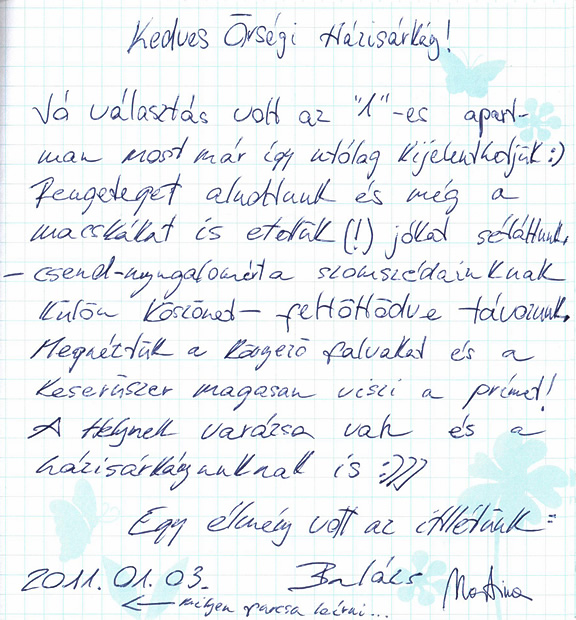 Kedves Őrségi Házisárkány!
Jó választás volt az "1"-es apart-
man most már így utólag kijelenthetjük :)
Rengeteget aludtunk és még a
macskákat is etettük (!) jókat sétáltunk.
- csend-nyugalomért a szomszédainknak
külön köszönet - feltöltődve távozunk.
Megnéztük a környező falvakat és a
Keserűszer magasan viszi a prímet!
A Helynek varázsa van és a
házisárkányunknak is :)))
Egy élmény volt az ittlétünk =
2011.01.03. Balázs Martina
← milyen furcsa leírni...